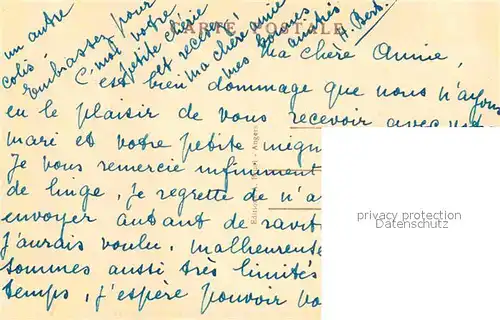 CARTE POSTALE
Ma chère Annie,
C'est bien dommage que nous n'ayons
eu le plaisir de vous recevoir avec
mari et votre petite
Je vous remercie infiniment
de linge. Je regrette de n'a
envoyer autant de ravit
j'aurais voulu. Malheureuse
sommes aussi très limités
temps, j'espère pouvoir vo
un autre
colis.
Embrassez pour
votre
petite chérie
et recevez
ma chère Annie
mes
amitiés
Angers
privacy protection
Datenschutz